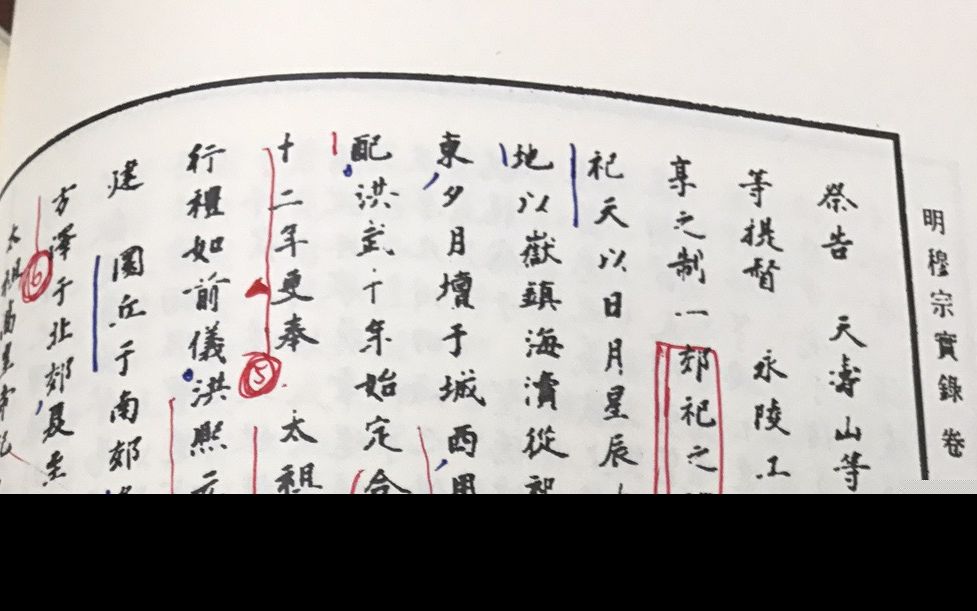 明穆宗實錄卷
祭告 天壽山等
等提督 永陵工
享之制一郊祀之
祀天以日月星辰
地以嶽鎮海瀆從祀
東夕月壇于城西用
配洪武十年始定合
十二年更奉 太祖
行禮如前儀洪熙元
建 圜丘于南郊
方澤于北郊夏至
太祖高皇帝配
⑤
⑥